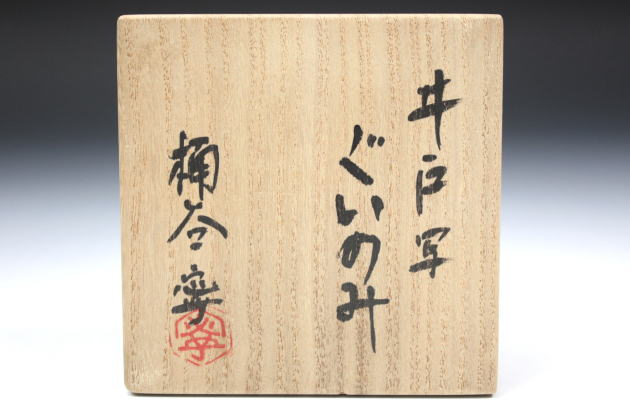 井戸写
ぐいのみ
桶谷寧
寧